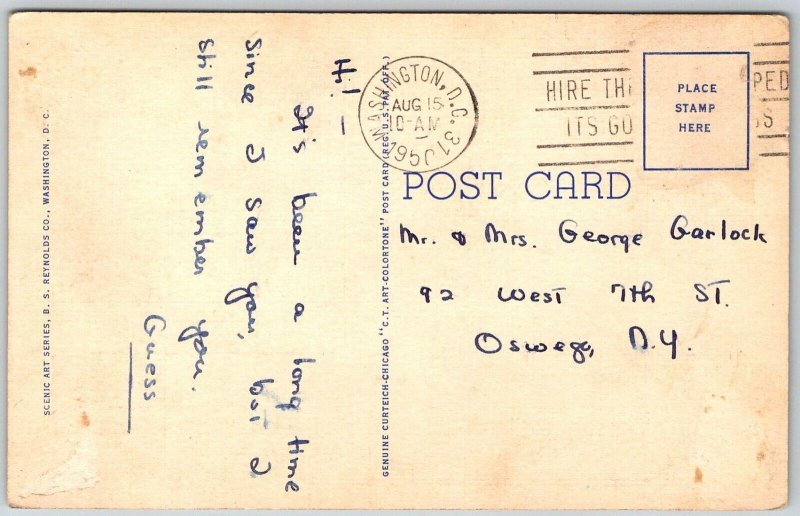 Hi! —
It's been a long time
since I saw you, but I
still remember you.
Guess
SCENIC ART SERIES, B. S. REYNOLDS CO., WASHINGTON, D. C.
GENUINE CURTEICH-CHICAGO "C.T. ART-COLORTONE" POST CARD (REG. U.S. PAT. OFF.)
WASHINGTON, D.C. 31
AUG 15
10-AM
1956
HIRE TH
ITS GO
PLACE
STAMP
HERE
POST CARD
Mr. & Mrs. George Garlock
92 West 7th ST.
Oswego, N.Y.